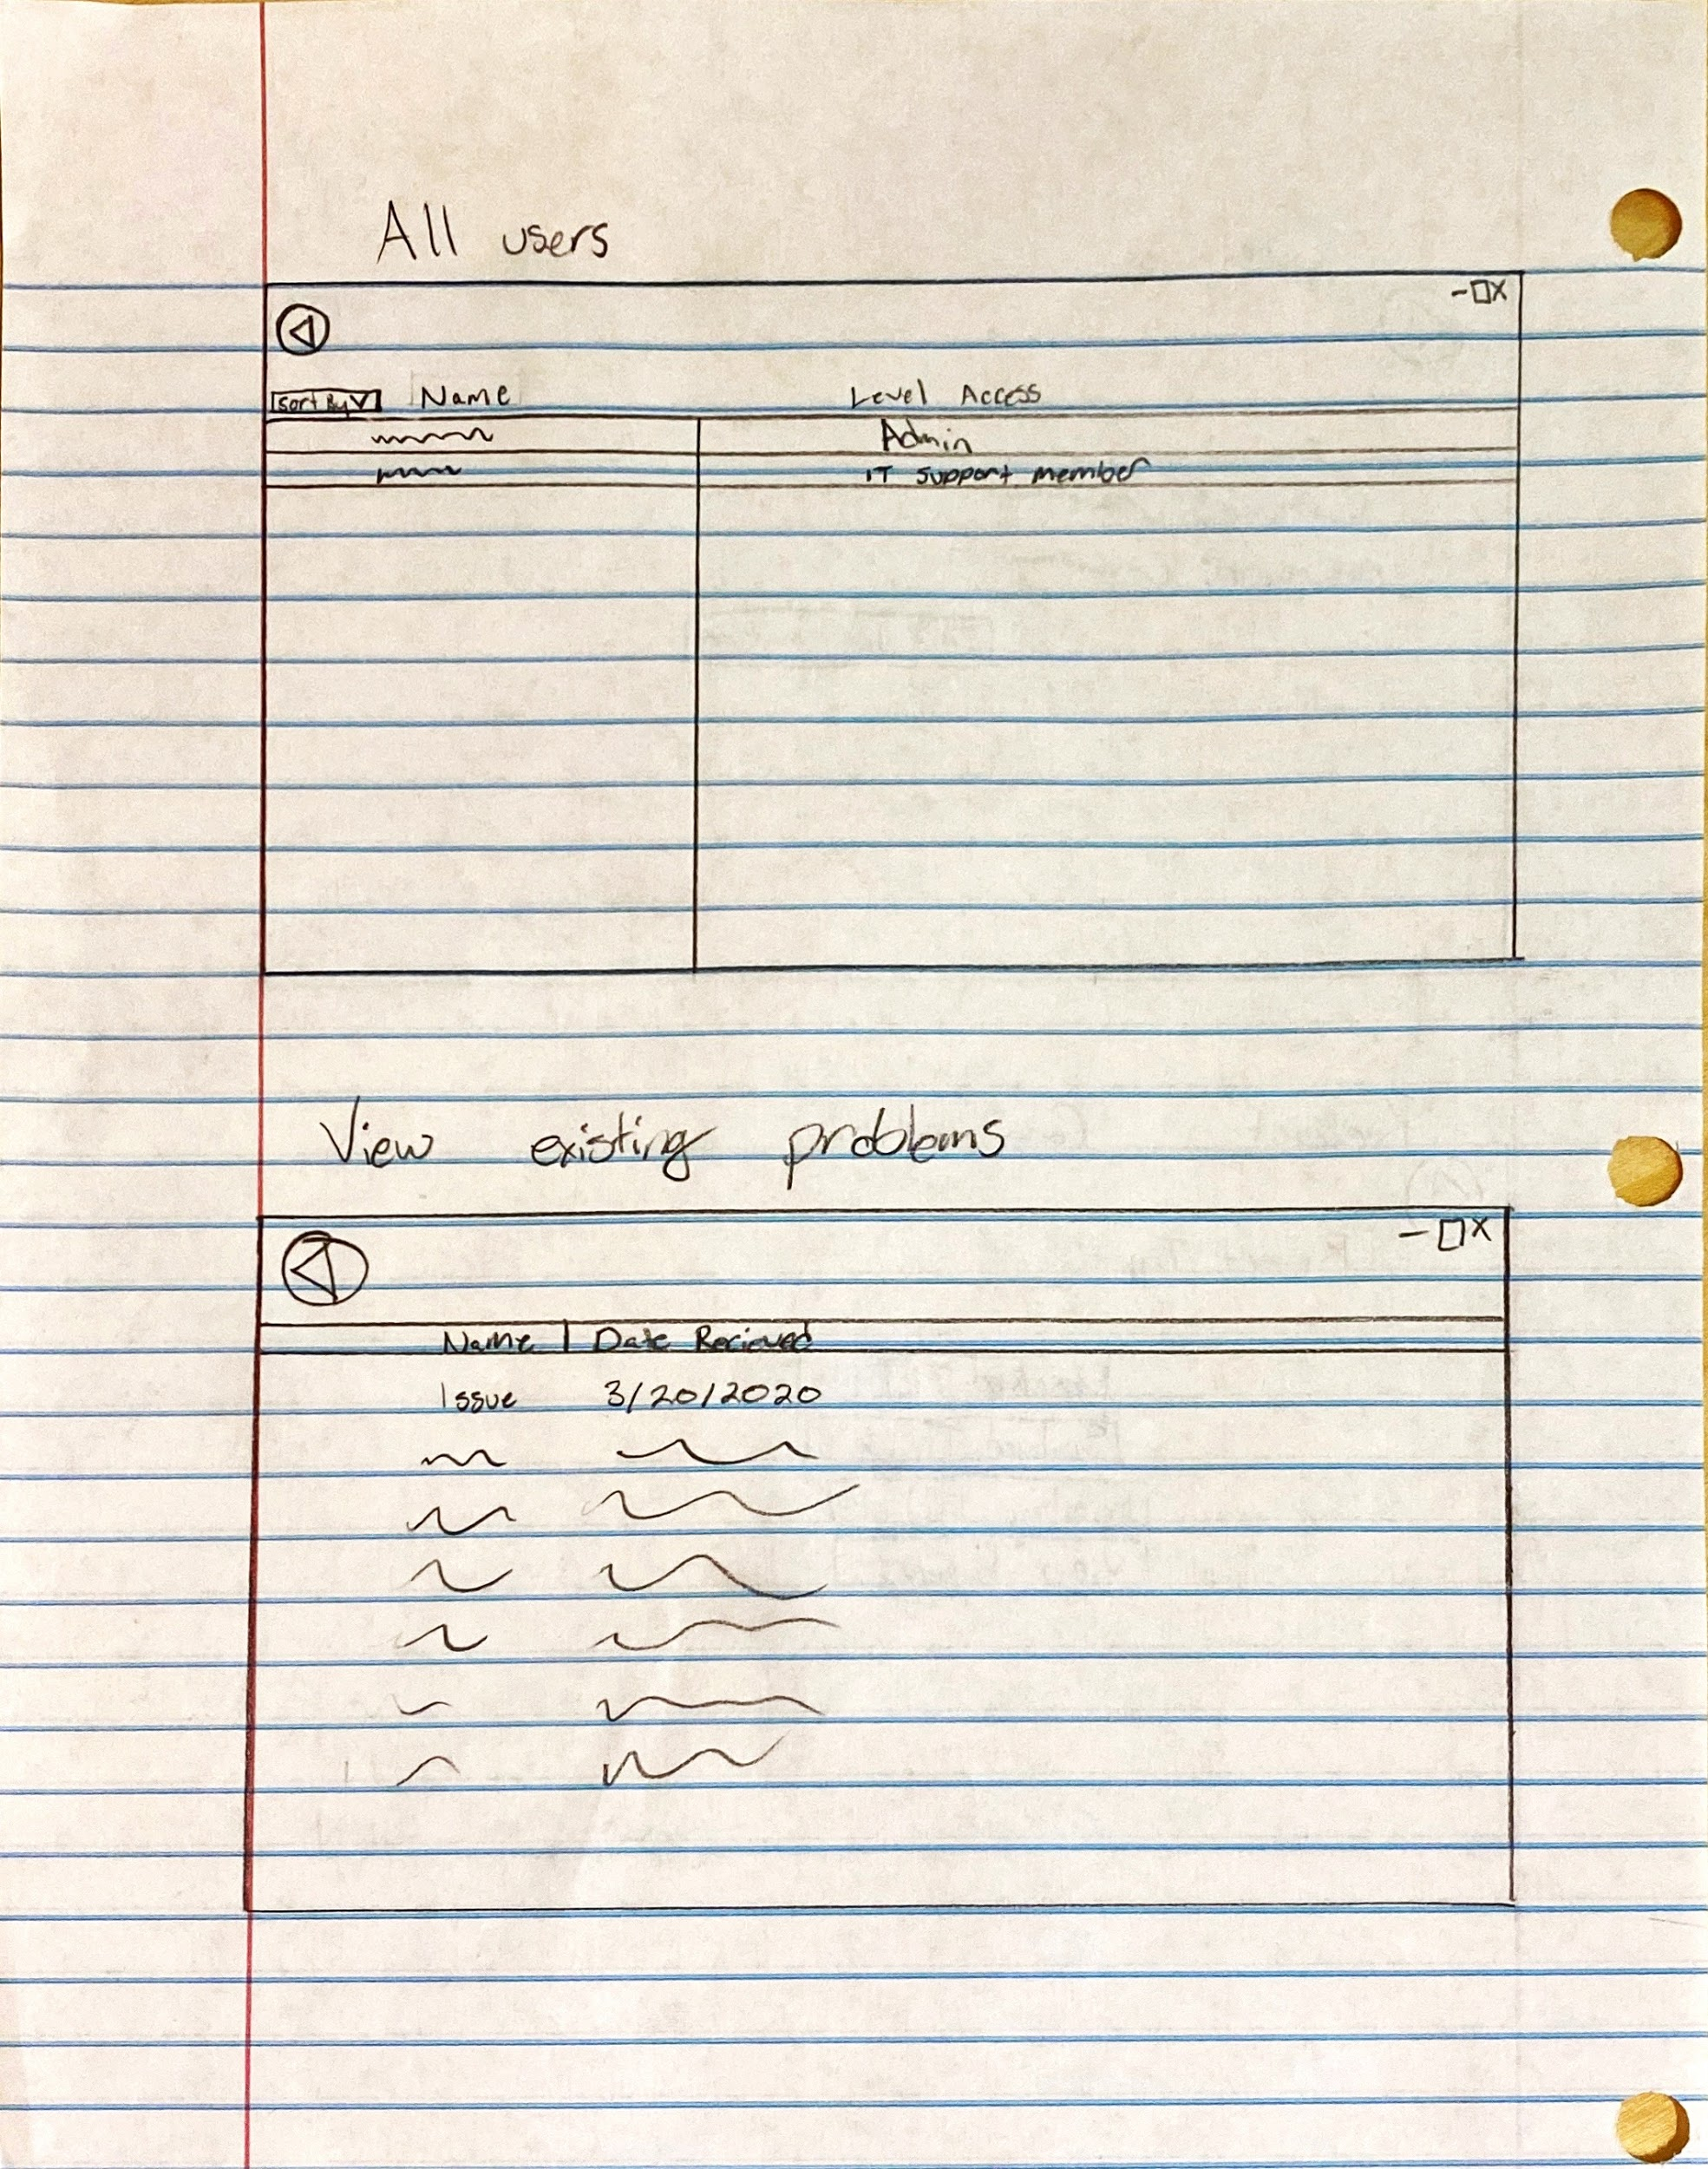 All users
Sort By Name Level Access
Admin
IT support member
View existing problems
Name | Date Recieved
Issue 3/20/2020